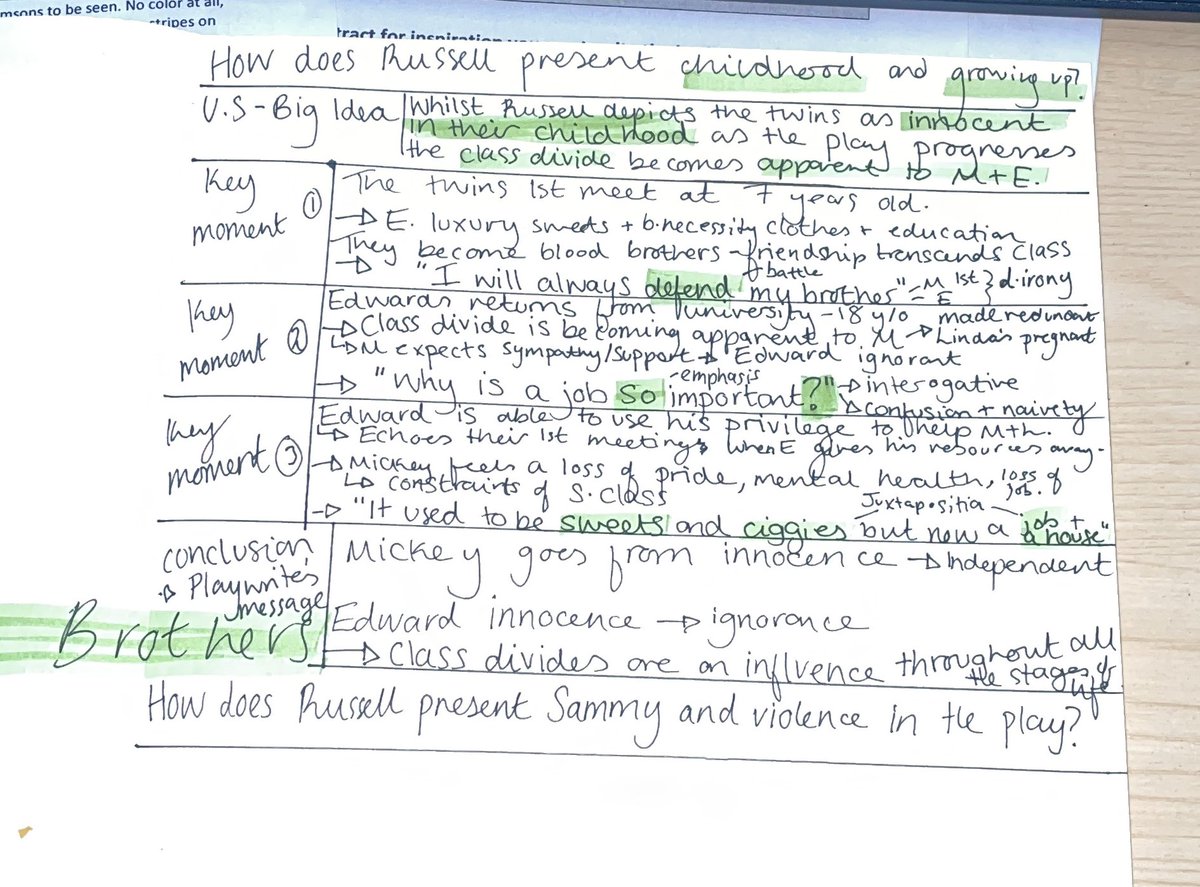 msons to be seen. No color at all,
stripes on
tract for inspiration
How does Russell present childhood and growing up?
U.S-Big Idea
Whilst Russell depicts the twins as innocent
in their childhood as the play progresses
the class divide becomes apparent to M+E.
Key
moment ①
The twins 1st meet at 7 years old.
→ E. luxury sweets + b.necessity clothes + education
They become blood brothers - friendship transcends Class
→ "I will always defend my brother" = M 1st } d.irony
+ battle
E
Key
moment ②
Edwards returns from university - 18 y/o made redundant
→ Class divide is becoming apparent to M → Linda's pregnant
↳ M expects sympathy/support → Edward ignorant
- emphasis
→ "Why is a job so important?" → interogative
↘ confusion + naivety
Key
moment ③
Edward is able to use his privilege to help M+L.
↳ Echoes their 1st meeting when E gives his resources away.
→ Mickey feels a loss of pride, mental health, loss of job.
↳ constraints of S. class
Juxtapositia
→ "It used to be sweets and ciggies but now a job + a house"
conclusion
→ Playwrite's
message
Mickey goes from innocence → Independent
Brothers
Edward innocence → ignorance
→ Class divides are an influence throughout all
the stages of
life
How does Russell present Sammy and violence in the play?